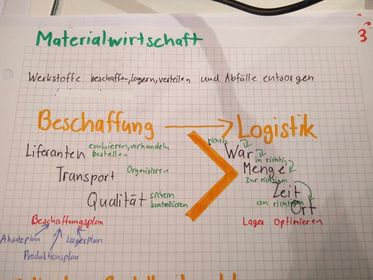 3
Materialwirtschaft
Werkstoffe beschaffen, lagern, verteilen und Abfälle entsorgen
Beschaffung → Logistik
Liferanten evaluieren, verhandeln
bestellen
Transport Organisieren
Qualität sichern
kontrollieren
Beschaffungsplan
Lagerplan
Produktionsplan
War
in richtig
Menge
zur richtigen
Zeit
an richtig
Ort
Lager Optimieren